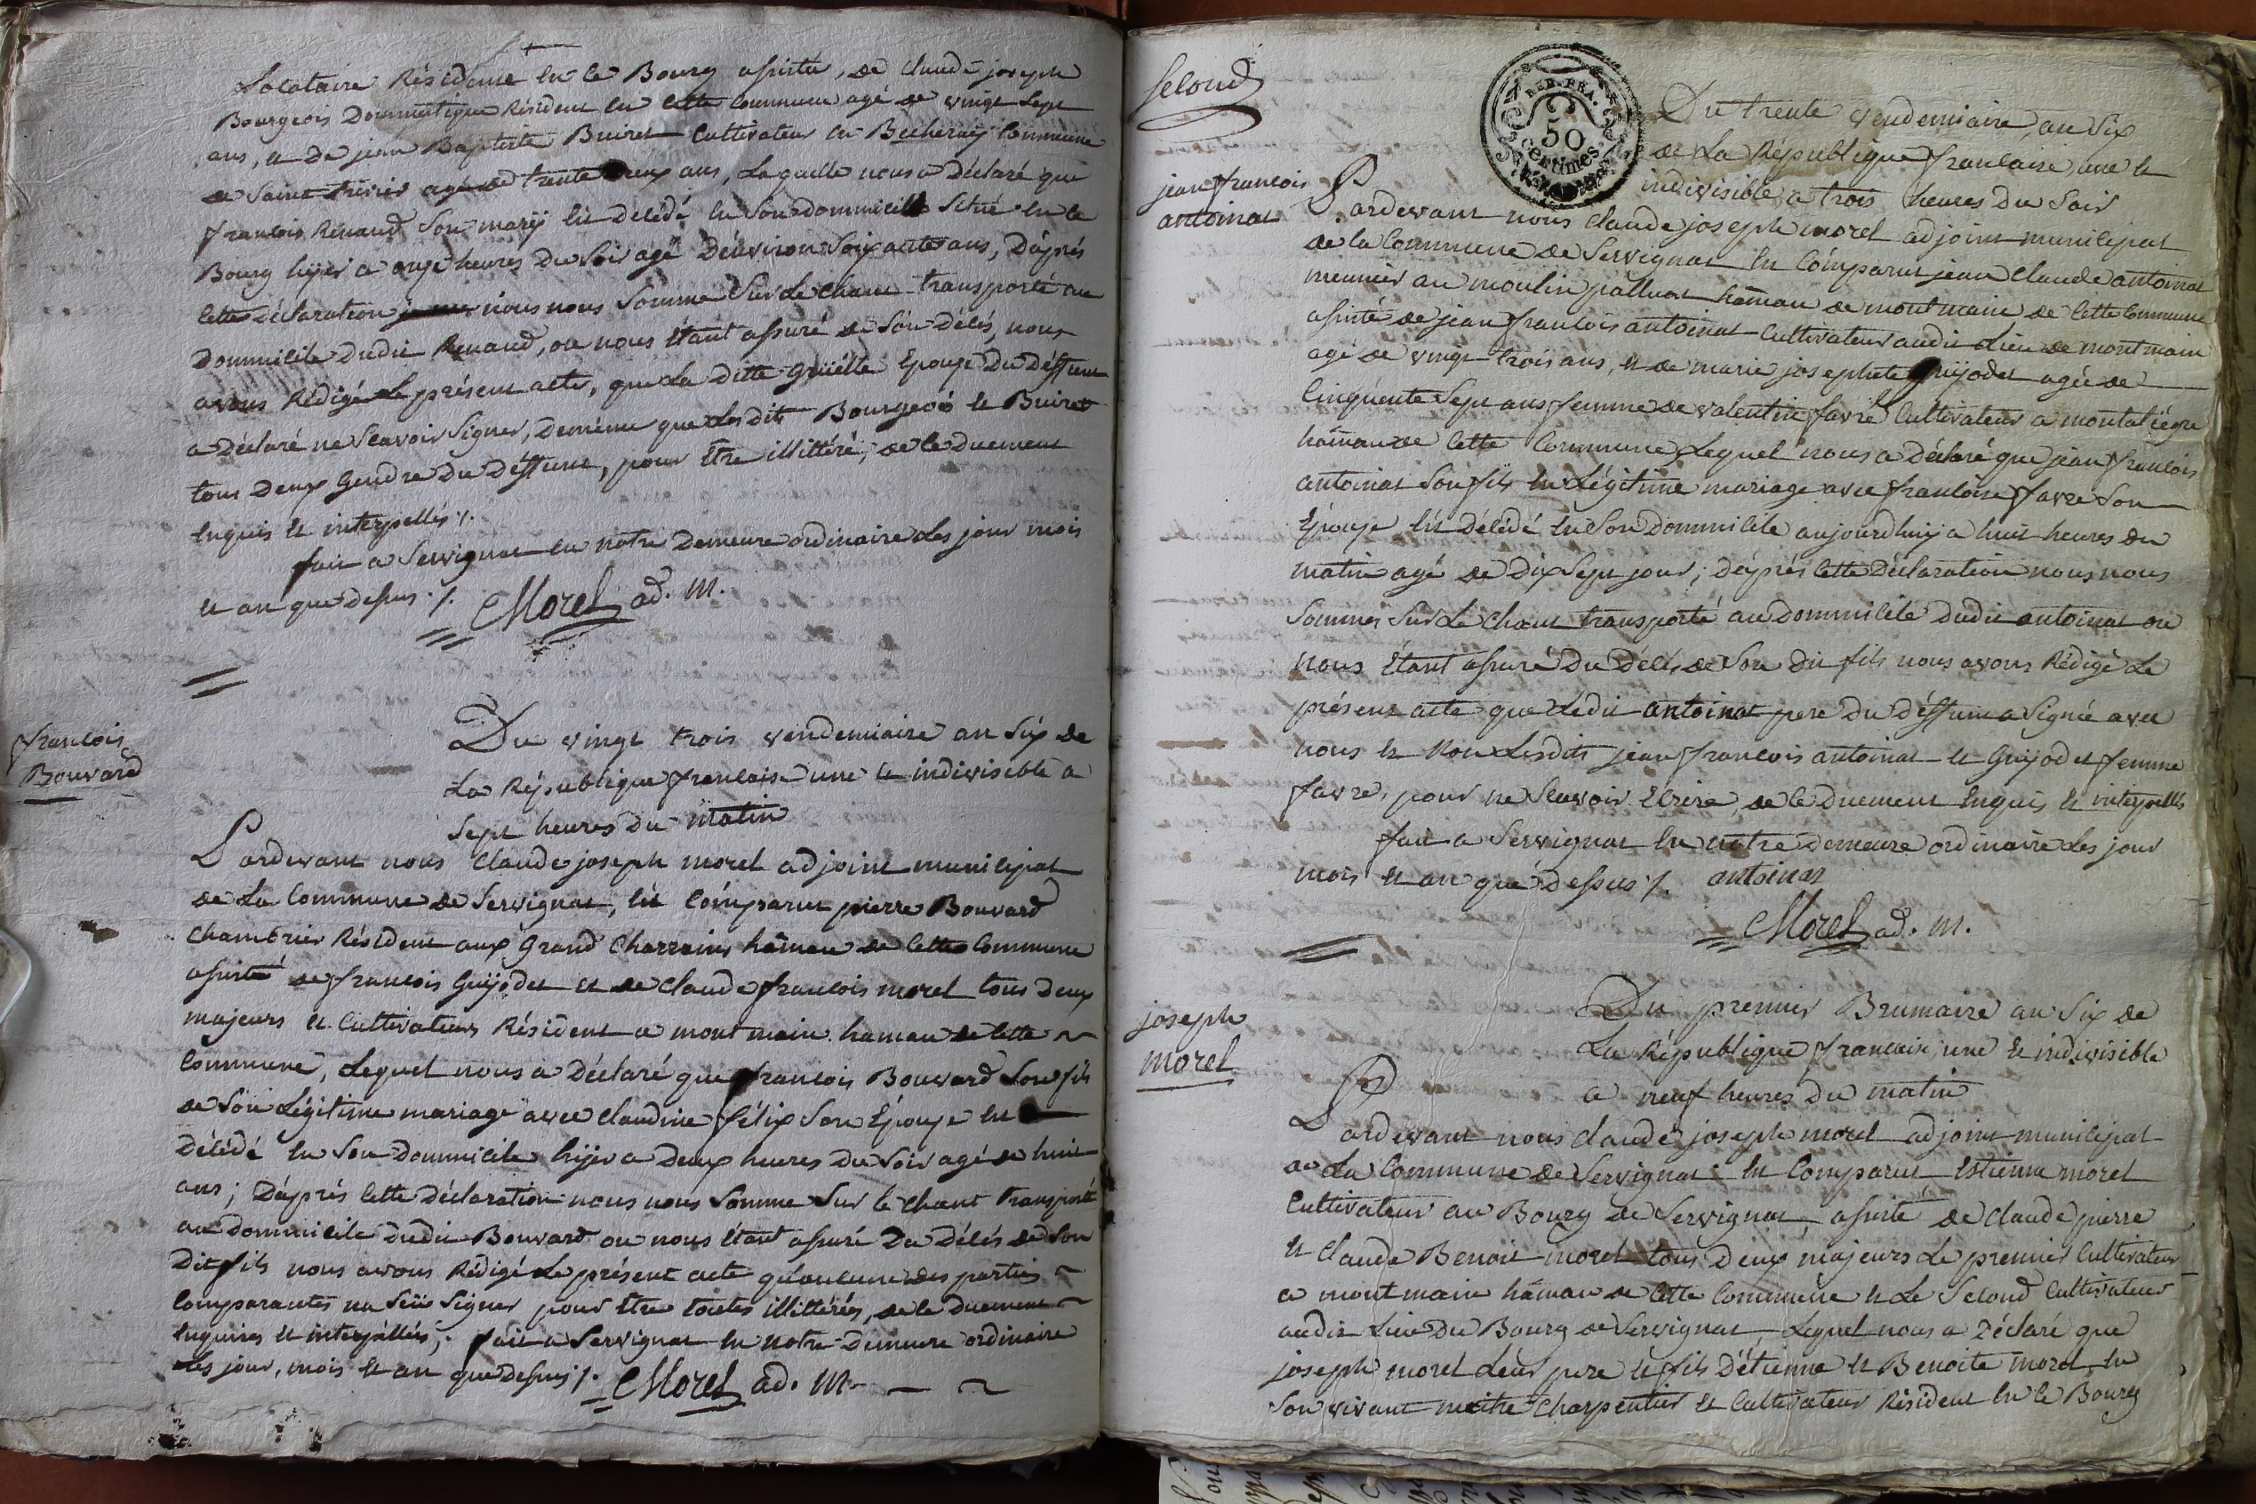 Locataire Résidame en ce Bourg assistée, de claude joseph
Bourgeois Dommestique Résident en cette Commune agé de vingt sept
ans, et de jean Baptiste Buiret Cultivateur en Becherey Commune
de Saint trivier agé de trente deux ans, Laquelle nous a Déclaré que
françois Renaud Son marÿ est décédé en Son dommicille Situé en ce
Bourg hÿer a onze heures Du Soir agé Dénviron Soixante ans, Dáprés
cette Déclaration nous nous Somme Sur Le Champ transporté au
Dommicile Dudit Renaud, ou nous étant assuré de Són décés, nous
avons Rédigé Le présent acte, que La Ditte Epouze Du Déffunt
a Déclaré ne Scavoir Signer, Demémé que Lesdit Bourgeois et Buiret
tous Deux Gendre Du Déffunt, pour étre illittéré, de ce Duement
Enquis et interpellés ./.
fait a Servignat en notre Demeure ordinaire Les jour mois
et an que dessus ./. CMorel ad. m.
francois
Bouvard
Du vingt trois vendemiaire an Six de
La République francaise une et indivisible a
Sept heures du matin
Pardevant nous Claude joseph morel adjoint municipal
de La Commune de Servignat, est Cómparut pierre Bouvard
Chambrier Résident aux Grand Charrains hâmau de Cette Commune
assisté de francois Guÿodet et de claude francois morel tous deux
majeurs et Cultivateurs Résident a mont main hamau de Cette
Commune, Lequel nous a Déclaré que francois Bouvard Son fils
de Són Légitime mariage avec claudine félix Son Epouze est
Décédé en Son Dommicile hÿer a Deux heures Du Soir agé de huit
ans; Dáprés Cette Déclaration nous nous Somme Sur le Chant transporté
au dommicile Dudit Bouvard ou nous étant assuré Du Décés de Son
Dit fils nous avons Rédigé Le présent acte qúaucune des parties
Comparantes na Sçu Signer pour être toutes illittérées, de ce Duement
Enquises et interpéllées; fait a Servignat en notre Demeure ordinaire
Les jour, mois et an que dessus ./. CMorel ad. m.
Second
jean francois
antoinat
REP. FRA.
50
centimes
Du trente vendemiaire an Six
de La République francaise une et
indivisible a trois heures du Soir
Pardevant nous claude joseph morel adjoint municipal
de la Commune de Servignat est Cómparut jean Claude antoinat
meunier au moulin palluat hâmau de mont main de Cette Commune
assisté de jean francois antoinat Cultivateur audit Lieu de mont main
agé de vingt trois ans, et de marie josephete Guÿodet agée de
Cinquente Sept ans femme de valentin favre Cultivateur a montaliégre
hâmau de Cette Commune Lequel nous a Déclaré que jean francois
antoinat Són fils en Légitime mariage avec francoise favre Son
Epouze est Décédé en Son Dommicile aujourdhuÿ a huit heures du
matin agé de Dix Sept jour; Dáprés Cette Déclaration nous nous
Sommes Sur Le Chant transporté au Dommicile dudit antoinat ou
nous étant assuré Du Décés de Son dit fils nous avons Rédigé Le
présent acte que Ledit antoinat pere du Déffunt a Signé avec
nous et Non Lesdits jean francois antoinat et Guÿodet femme
favre, pour ne Scavoir Ecrire, de ce Duement Enquis et interpellés
fait a Servignat en notre demeure ordinaire Les jour
mois et an qué dessus ./. antoinat
CMorel ad. m.
joseph
morel
Du premier Brumaire an Six de
La République francaise, une et indivisible
a neuf heures du matin
Pardevant nous claude joseph morel adjoint municipal
de La Commune de Servignat est Comparut Estienne morel
Cultivateur au Bourg de Servignat, assisté de claude pierre
et claude Benoit morel tous Deux majeurs Le premier Cultivateur
a mont main hâmau de Cette Commune et Le Second Cultivateur
audit Lieu Du Bourg de Servignat, Lequel nous a Déclaré que
joseph morel Leur pere et fils Détienne et Benoite morel, en
Son vivant maitre Charpentier et Cultivateur Résident en ce Bourg